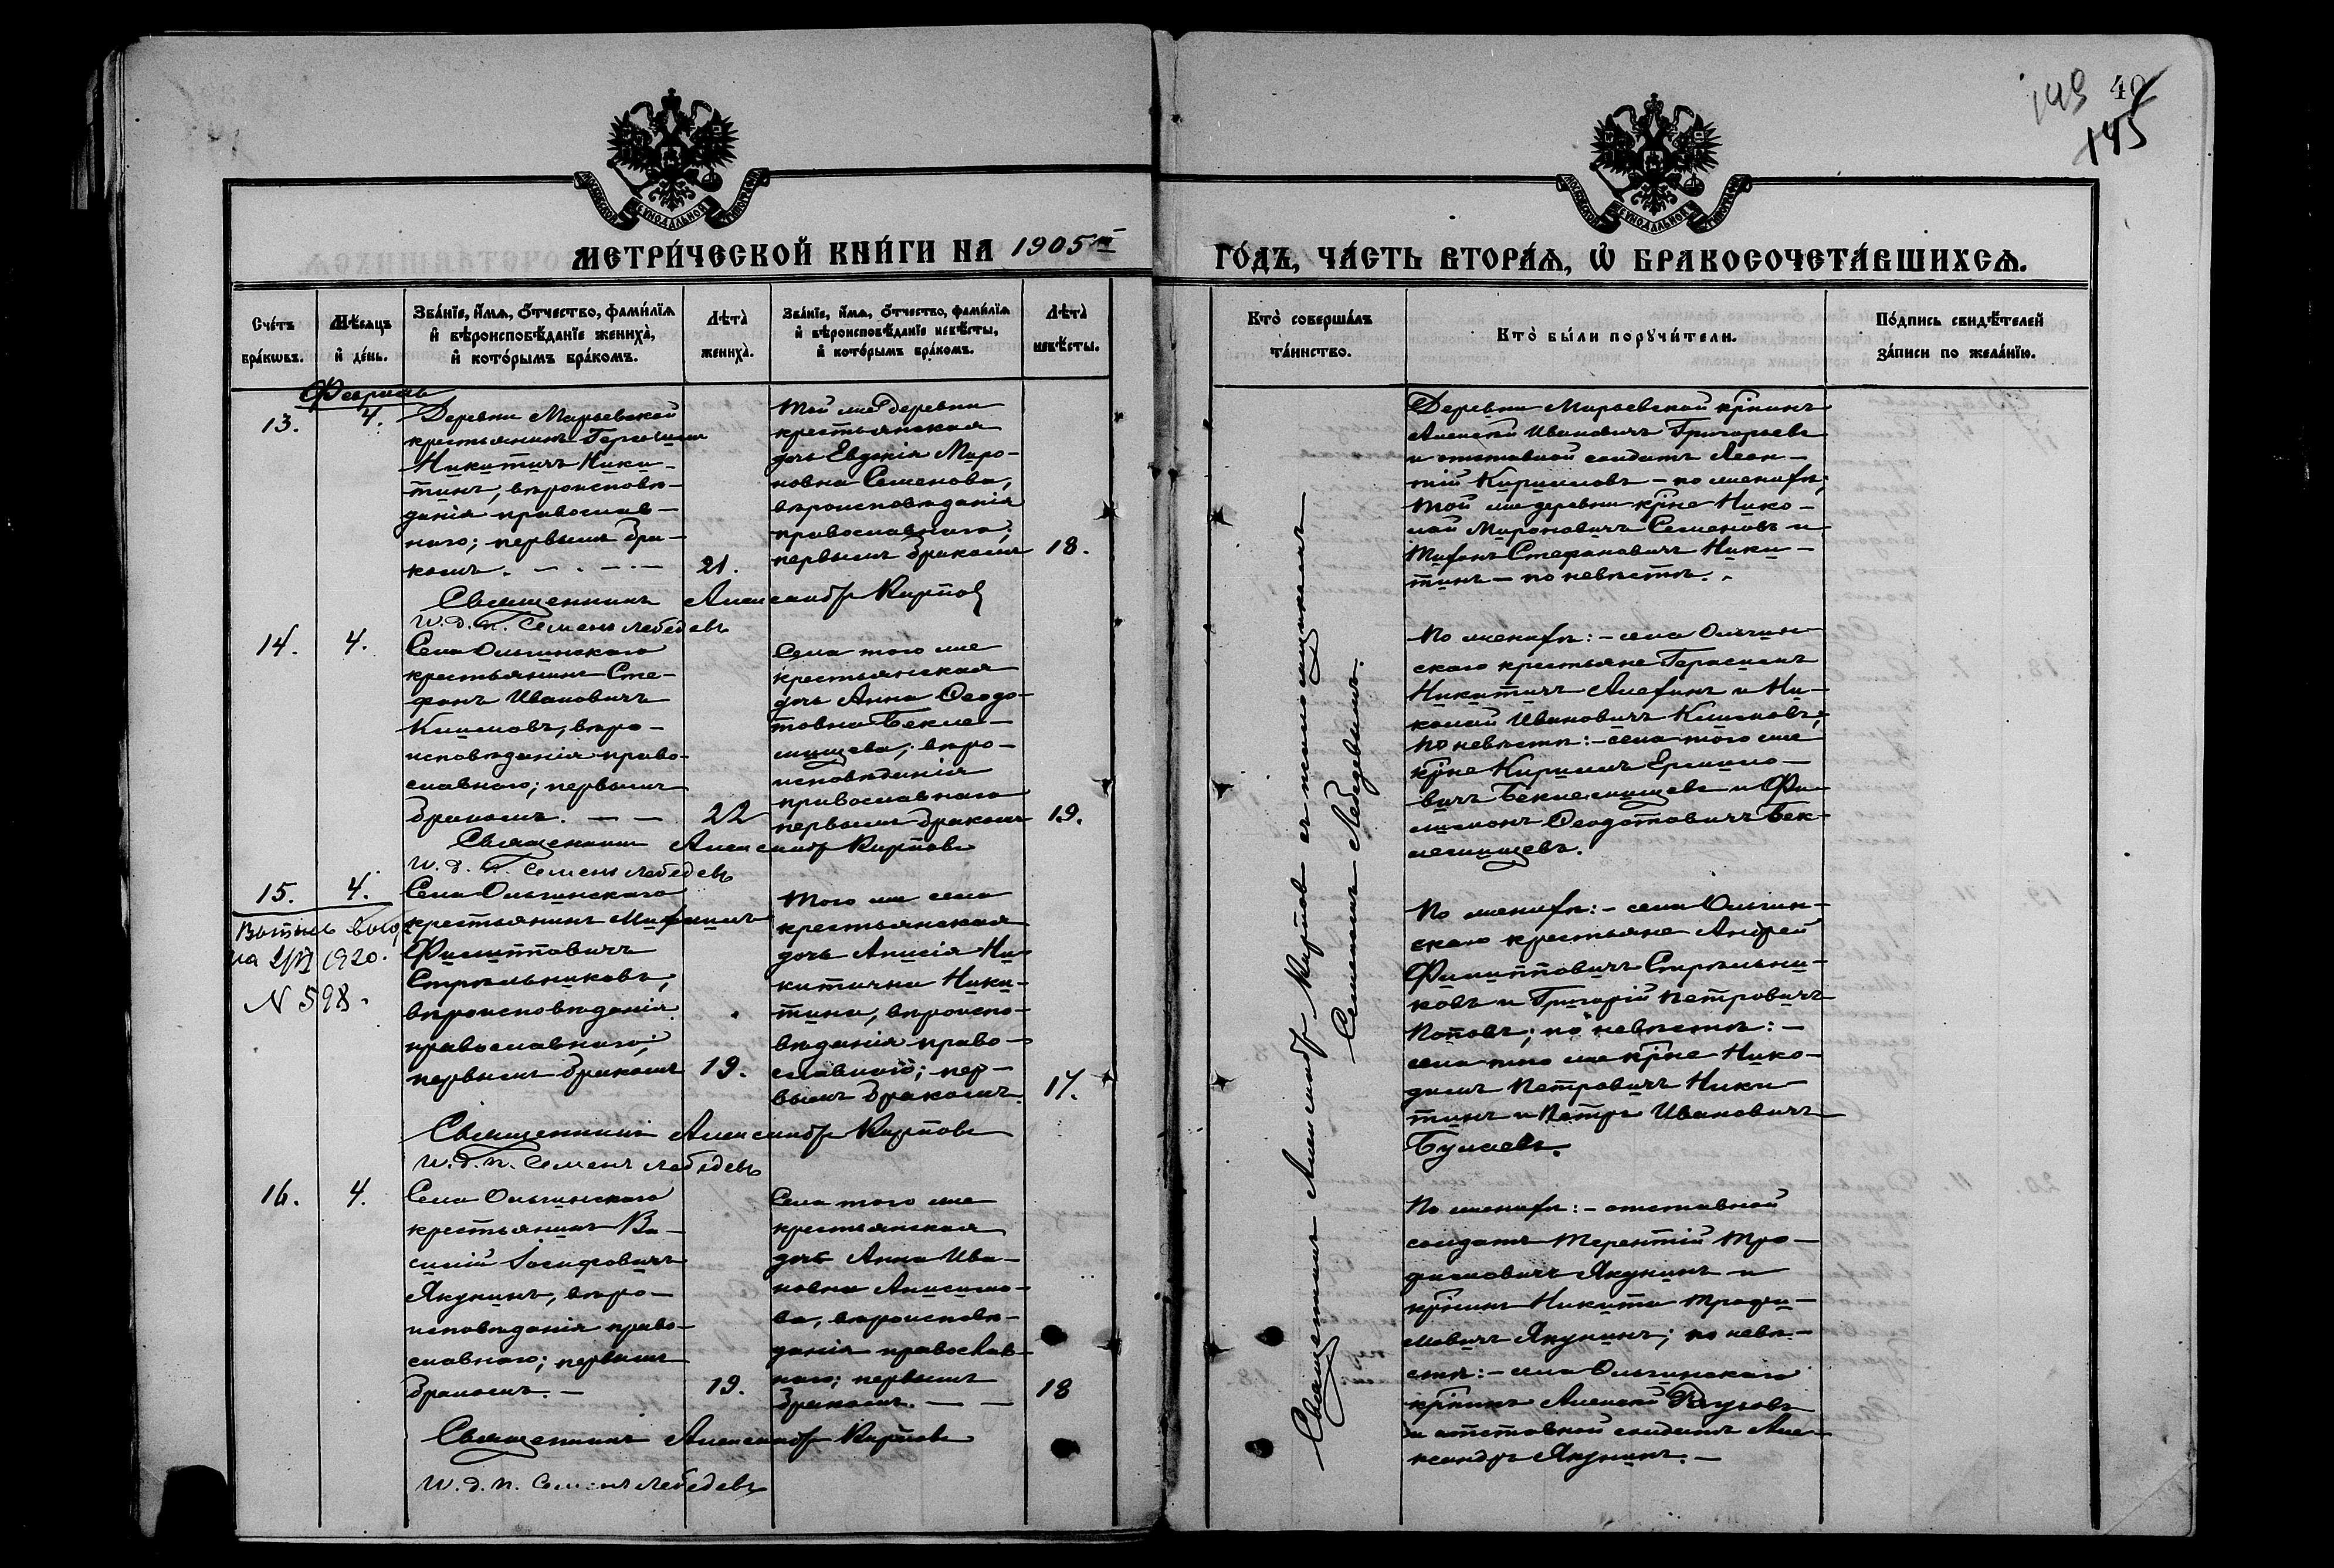 149 40
145
МОСКОВСКОЙ СѴНОДАЛЬНОЙ ТИПОГРАФІИ
МОСКОВСКОЙ СѴНОДАЛЬНОЙ ТИПОГРАФІИ
МЕТРИ́ЧЕСКОЙ КНИ́ГИ НА 1905й
ГО́ДЪ, ЧА́СТЬ ВТОРА́Ѧ, Ѽ БРАКОСОЧЕТА́ВШИХСѦ.
Сче́тъ бра́кѡвъ.
Мѣ́сяцъ и҆ де́нь.
Зва́нїе, и҆́мѧ, ѻ҆́тчество, фами́лїѧ
и҆ вѣроисповѣ́данїе жениха̀,
и҆ кото́рымъ бра́комъ.
Лѣта̀ жениха̀.
Зва́нїе, и҆́мѧ, ѻ҆́тчество, фами́лїѧ
и҆ вѣроисповѣ́данїе невѣ́сты,
и҆ кото́рымъ бра́комъ.
Лѣта̀ невѣ́сты.
Кто̀ соверша́лъ
та́инство.
Кто̀ бы́ли порꙋчи́тели.
По́дпись свидѣ́телей
за́писи по жела́нїю.
Февраль
13.
4.
Деревни Марьевской
крестьянинъ Герасимъ
Никитичъ Ники-
тинъ, вѣроисповѣ-
данія православ-
наго; первымъ бра-
комъ.
21.
Той же деревни
крестьянская
дочь Евдокія Миро-
новна Семенова,
вѣроисповѣданія
православнаго;
первымъ бракомъ
18.
Деревни Марьевской кр-нинъ
Алексѣй Ивановичъ Григорьевъ
и отставной солдатъ Леон-
тій Кирилловъ - по женихѣ;
той же деревни кр-не Нико-
лай Мироновичъ Семеновъ и
Стефановичъ Ники-
тинъ - по невѣстѣ.
Священникъ Александръ Карповъ
И. д. п. Семенъ Лебедевъ
14.
4.
Села Ольгинскаго
крестьянинъ Сте-
фанъ Ивановичъ
Климовъ, вѣро-
исповѣданія право-
славнаго; первымъ
бракомъ. - -
22
Села того же
крестьянская
дочь Анна Ѳеодо-
товна Бекле-
мищева, вѣро-
исповѣданія
православнаго
первымъ бракомъ
19.
По женихѣ: - села Ольгин-
скаго крестьяне Герасимъ
Никитичъ и Ни-
колай Ивановичъ Климовъ;
по невѣстѣ: - села того же
кр-не Кирилъ
вичъ Беклемищевъ и Фи-
лимонъ Ѳеодотовичъ Бек-
лемищевъ.
Священникъ Александръ Карповъ
И. д. п. Семенъ Лебедевъ
15.
4.
N 598.
Села Ольгинскаго
крестьянинъ Михаилъ
Филипповичъ
Стрѣльниковъ,
вѣроисповѣданія
православнаго;
первымъ бракомъ
19.
Того же села
крестьянская
дочь Анисія Ни-
китична Ники-
тина, вѣроиспо-
вѣданія право-
славнаго; пер-
вымъ бракомъ.
17.
По женихѣ: - села Ольгин-
скаго крестьяне Андрей
Филипповичъ Стрѣльни-
ковъ и Григорій Петровичъ
Поповъ; по невѣстѣ: -
села того же кр-не Нико-
димъ Петровичъ Ники-
тинъ и Петръ Ивановичъ
Священникъ Александръ Карповъ
И. д. п. Семенъ Лебедевъ
16.
4.
Села Ольгинскаго
крестьянинъ Ва-
силій Іосифовичъ
Якунинъ, вѣро-
исповѣданія право-
славнаго; первымъ
бракомъ. -
19.
Села того же
крестьянская
дочь Анна Ива-
новна Анисимо-
ва, вѣроисповѣ-
данія православ-
наго; первымъ
бракомъ. - -
18
По женихѣ: - отставной
солдатъ Терентій Тро-
фимовичъ Якунинъ и
кр-нинъ Никита Трофи-
мовичъ Якунинъ; по невѣ-
стѣ: - села Ольгинскаго
кр-нинъ Алексѣй
и отставной солдатъ Але-
ксандръ Якунинъ. -
Священникъ Александръ Карповъ
И. д. п. Семенъ Лебедевъ
Священникъ Александръ Карповъ съ псаломщикомъ
Семеномъ Лебедевымъ.